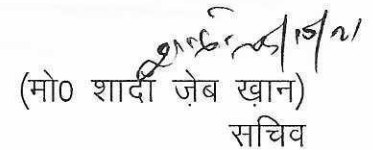 (मो० शादी ज़ेब ख़ान)
सचिव